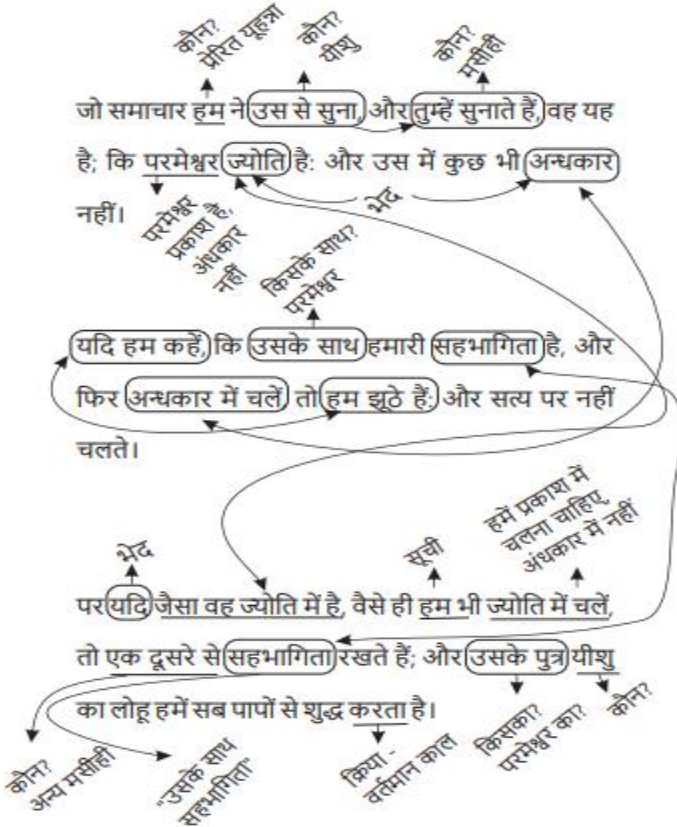 कौन?
प्रेरित यूहन्ना
कौन?
यीशु
कौन?
मसीही
जो समाचार हम ने उस से सुना, और तुम्हें सुनाते हैं, वह यह
है; कि परमेश्वर ज्योति है: और उस में कुछ भी अन्धकार
नहीं।
भेद
परमेश्वर
प्रकाश है,
अंधकार
नहीं
किसके साथ?
परमेश्वर
यदि हम कहें, कि उसके साथ हमारी सहभागिता है, और
फिर अन्धकार में चलें, तो हम झूठे हैं: और सत्य पर नहीं
चलते।
भेद
सूची
हमें प्रकाश में
चलना चाहिए,
अंधकार में नहीं
पर यदि जैसा वह ज्योति में है, वैसे ही हम भी ज्योति में चलें,
तो एक दूसरे से सहभागिता रखते हैं; और उसके पुत्र यीशु
का लोहू हमें सब पापों से शुद्ध करता है।
कौन?
अन्य मसीही
"उसके साथ
सहभागिता"
क्रिया -
वर्तमान काल
किसका?
परमेश्वर का?
कौन?